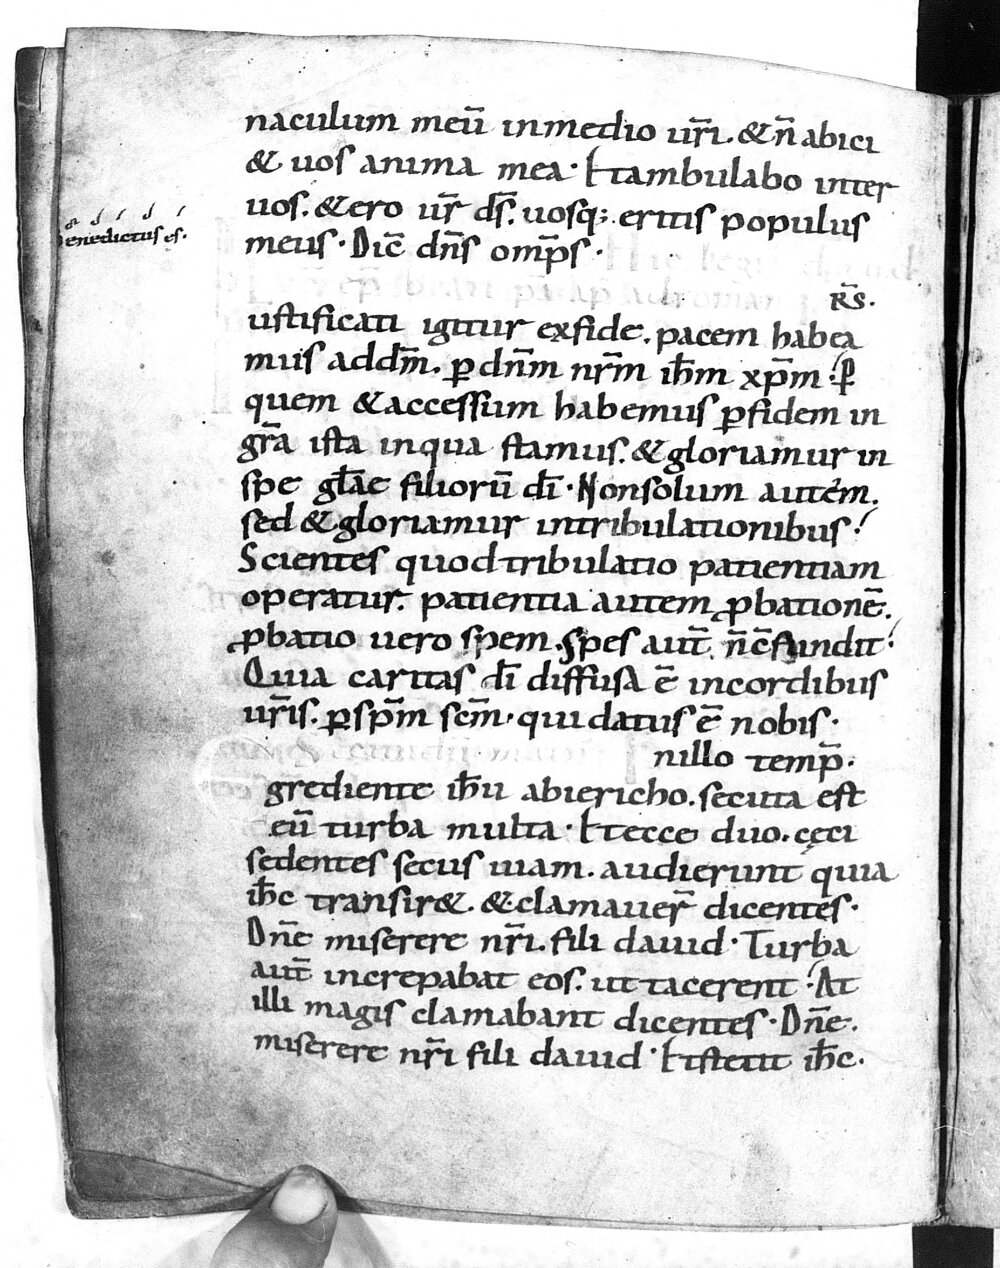 naculum meū inmedio ur̄i. &n̄ abici
& uos anima mea· Et ambulabo inter
uos. &ero ur̄ ds̄. uosq; eritis populus
enedictus es.
meus· Dic̄ dn̄s omp̄s·
Rs̄.
ustificati igitur exfide. pacem habea
mus addm̄. ꝑ dn̄m nr̄m ih̄m xp̄m· ꝑ
quem &accessum habemus ꝑfidem in
gr̄a ista inqua stamus. &gloriamur in
spe gl̄ae filiorū dī· Nonsolum autem.
sed &gloriamur intribulationibus·
Scientes quod tribulatio patientiam
operatur. patientia autem ꝓbationē.
ꝓbatio uero spem. Spes aut̄ n̄ c̄fundit·
Quia caritas dī diffusa ē incordibus
ur̄is. ꝑ sp̄m sc̄m· qui datus ē nobis·
nillo temp̄.
grediente ih̄u abiericho. secuta est
eū turba multa· Et ecce duo. cęci
sedentes secus uiam. audierunt quia
ih̄c transir&. &clamauer̄ dicentes·
Dn̄e miserere nr̄i. fili dauid· Turba
aut̄ increpabat eos. ut tacerent· At
illi magis clamabant dicentes· Dn̄e.
miserere nr̄i fili dauid· Et stetit ih̄c.